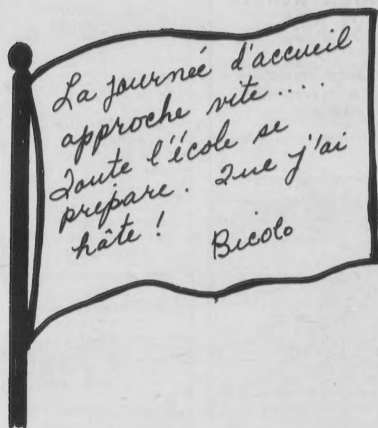 La journée d'accueil
approche vite....
Toute l'école se
prépare. Que j'ai
hâte!
Bicolo